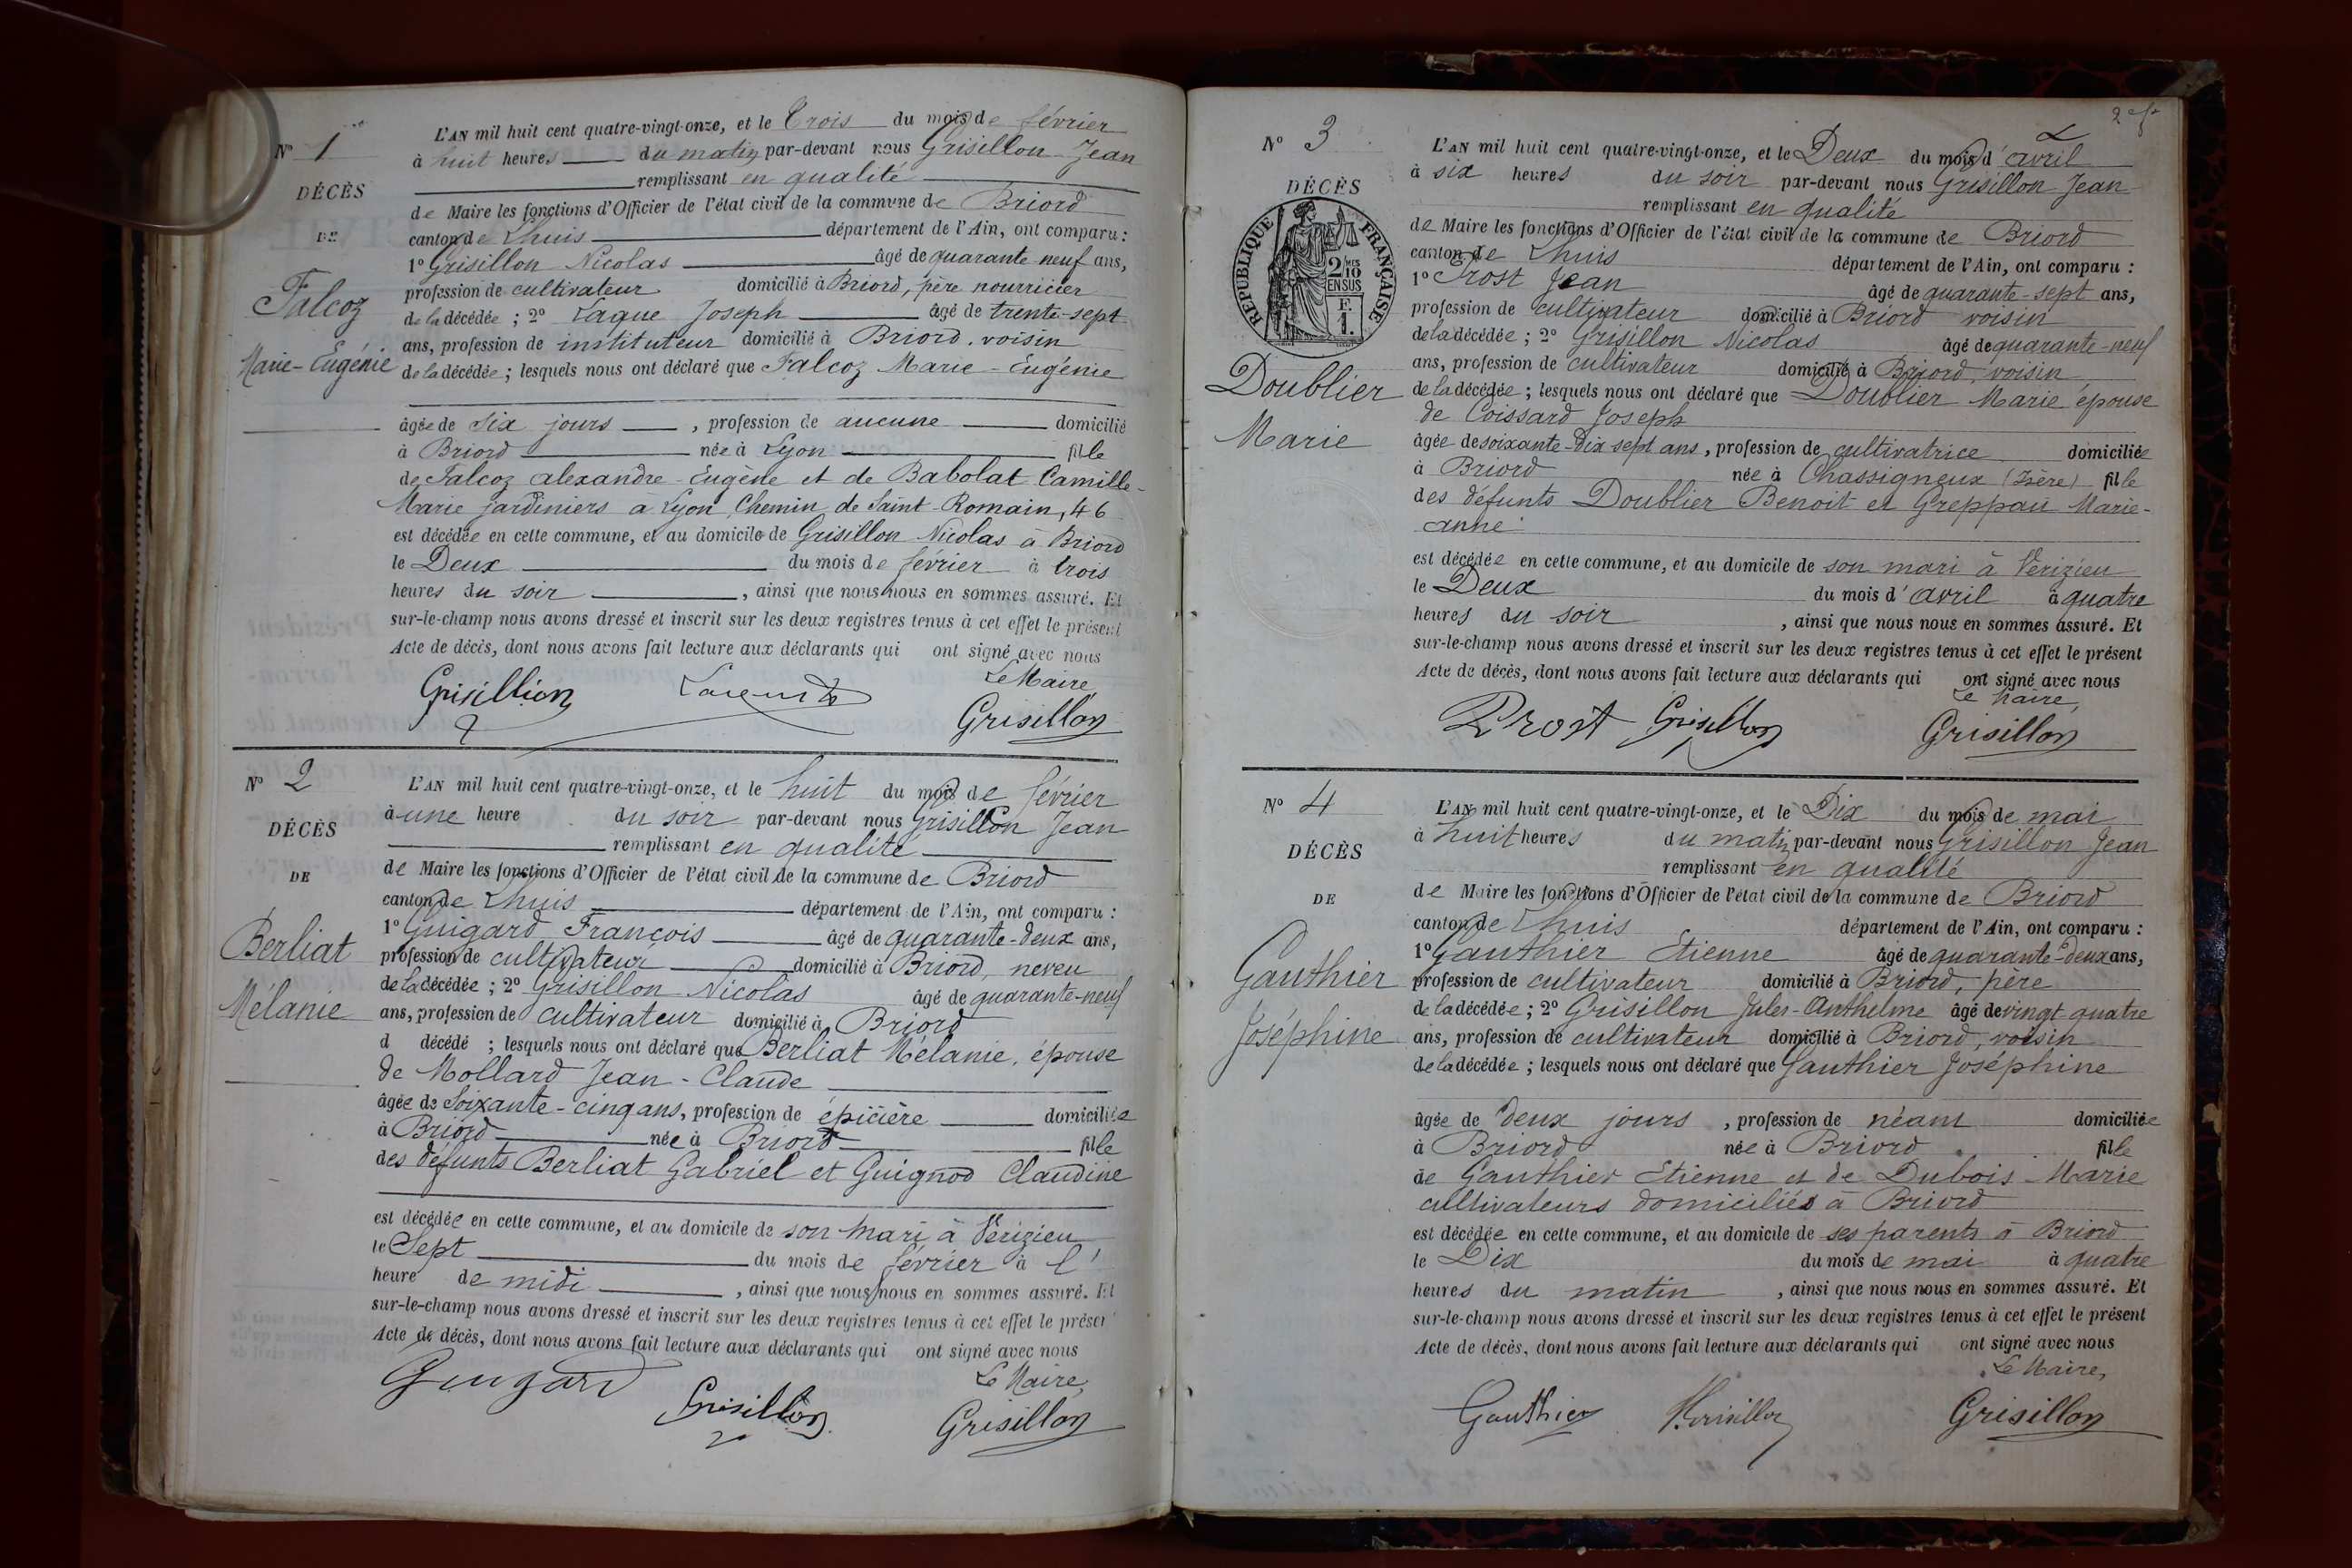 Nº 1
DÉCÈS
DE
Falcoz
Marie-Eugénie
L'AN mil huit cent quatre-vingt-onze, et le Trois du mois de février
à huit heures du matin par-devant nous Grisillon Jean
remplissant en qualité
de Maire les fonctions d'Officier de l'état civil de la commune de Briord
canton de Lhuis département de l'Ain, ont comparu :
1º Grisillon Nicolas âgé de quarante neuf ans,
profession de cultivateur domicilié à Briord, père nourricier
de la décédée ; 2º Laque Joseph âgé de trente-sept
ans, profession de instituteur domicilié à Briord, voisin
de la décédée ; lesquels nous ont déclaré que Falcoz Marie-Eugénie
âgée de six jours, profession de aucune domicilié
à Briord née à Lyon fille
de Falcoz alexandre Eugène et de Babolat Camille-
Marie jardiniers à Lyon Chemin de Saint-Romain, 46
est décédée en cette commune, et au domicile de Grisillon Nicolas à Briord
le Deux du mois de février à trois
heures du soir, ainsi que nous nous en sommes assuré. Et
sur-le-champ nous avons dressé et inscrit sur les deux registres tenus à cet effet le présent
Acte de décès, dont nous avons fait lecture aux déclarants qui ont signé avec nous
Le Maire,
Grisillion Grisillon
Nº 2
DÉCÈS
DE
Berliat
Mélanie
L'AN mil huit cent quatre-vingt-onze, et le huit du mois de février
à une heure du soir par-devant nous Grisillon Jean
remplissant en qualité
de Maire les fonctions d'Officier de l'état civil de la commune de Briord
canton de Lhuis département de l'Ain, ont comparu :
1º Guigard François âgé de quarante-deux ans,
profession de cultivateur domicilié à Briord, neveu
de la décédée ; 2º Grisillon Nicolas âgé de quarante-neuf
ans, profession de cultivateur domicilié à Briord
d décédé ; lesquels nous ont déclaré que Berliat Mélanie, épouse
de Mollard Jean-Claude
âgée de Soixante-cinq ans, profession de épicière domiciliée
à Briord née à Briord fille
des défunts Berliat Gabriel et Guignod Claudine
est décédée en cette commune, et au domicile de son mari à Vérizieu
le Sept du mois de février à l'
heure de midi, ainsi que nous nous en sommes assuré. Et
sur-le-champ nous avons dressé et inscrit sur les deux registres tenus à cet effet le présen
Acte de décès, dont nous avons fait lecture aux déclarants qui ont signé avec nous
Le Maire,
Guigard Grisillon Grisillon
Nº 3
DÉCÈS
RÉPUBLIQUE FRANÇAISE
2/10 MES
EN SUS
F.
1.
Doublier
Marie
L'AN mil huit cent quatre-vingt-onze, et le Deux du mois d'avril
à six heures du soir par-devant nous Grisillon Jean
remplissant en qualité
de Maire les fonctions d'Officier de l'état civil de la commune de Briord
canton de Lhuis département de l'Ain, ont comparu :
1º Prost Jean âgé de quarante-sept ans,
profession de cultivateur domicilié à Briord voisin
de la décédée ; 2º Grisillon Nicolas âgé de quarante-neuf
ans, profession de cultivateur domicilié à Briord, voisin
de la décédée ; lesquels nous ont déclaré que Doublier Marie épouse
de Coissard Joseph
âgée de soixante-dix sept ans, profession de cultivatrice domiciliée
à Briord née à Chassigneux (Isère) fille
des défunts Doublier Benoit et Greppau Marie-
anne
est décédée en cette commune, et au domicile de son mari à Vérizieu
le Deux du mois d'avril à quatre
heures du soir, ainsi que nous nous en sommes assuré. Et
sur-le-champ nous avons dressé et inscrit sur les deux registres tenus à cet effet le présent
Acte de décès, dont nous avons fait lecture aux déclarants qui ont signé avec nous
Le Maire,
Prost Grisillon Grisillon
Nº 4
DÉCÈS
DE
Gauthier
Joséphine
L'AN mil huit cent quatre-vingt-onze, et le Dix du mois de mai
à huit heures du matin par-devant nous Grisillon Jean
remplissant en qualité
de Maire les fonctions d'Officier de l'état civil de la commune de Briord
canton de Lhuis département de l'Ain, ont comparu :
1º Gauthier Etienne âgé de quarante-deux ans,
profession de cultivateur domicilié à Briord, père
de la décédée ; 2º Grisillon Jules-Anthelme âgé de vingt quatre
ans, profession de cultivateur domicilié à Briord, voisin
de la décédée ; lesquels nous ont déclaré que Gauthier Joséphine
âgée de deux jours, profession de néant domiciliée
à Briord née à Briord fille
de Gauthier Etienne et de Dubois Marie
cultivateurs domiciliés à Briord
est décédée en cette commune, et au domicile de ses parents à Briord
le Dix du mois de mai à quatre
heures du matin, ainsi que nous nous en sommes assuré. Et
sur-le-champ nous avons dressé et inscrit sur les deux registres tenus à cet effet le présent
Acte de décès, dont nous avons fait lecture aux déclarants qui ont signé avec nous
Le Maire,
Gauthier Grisillon